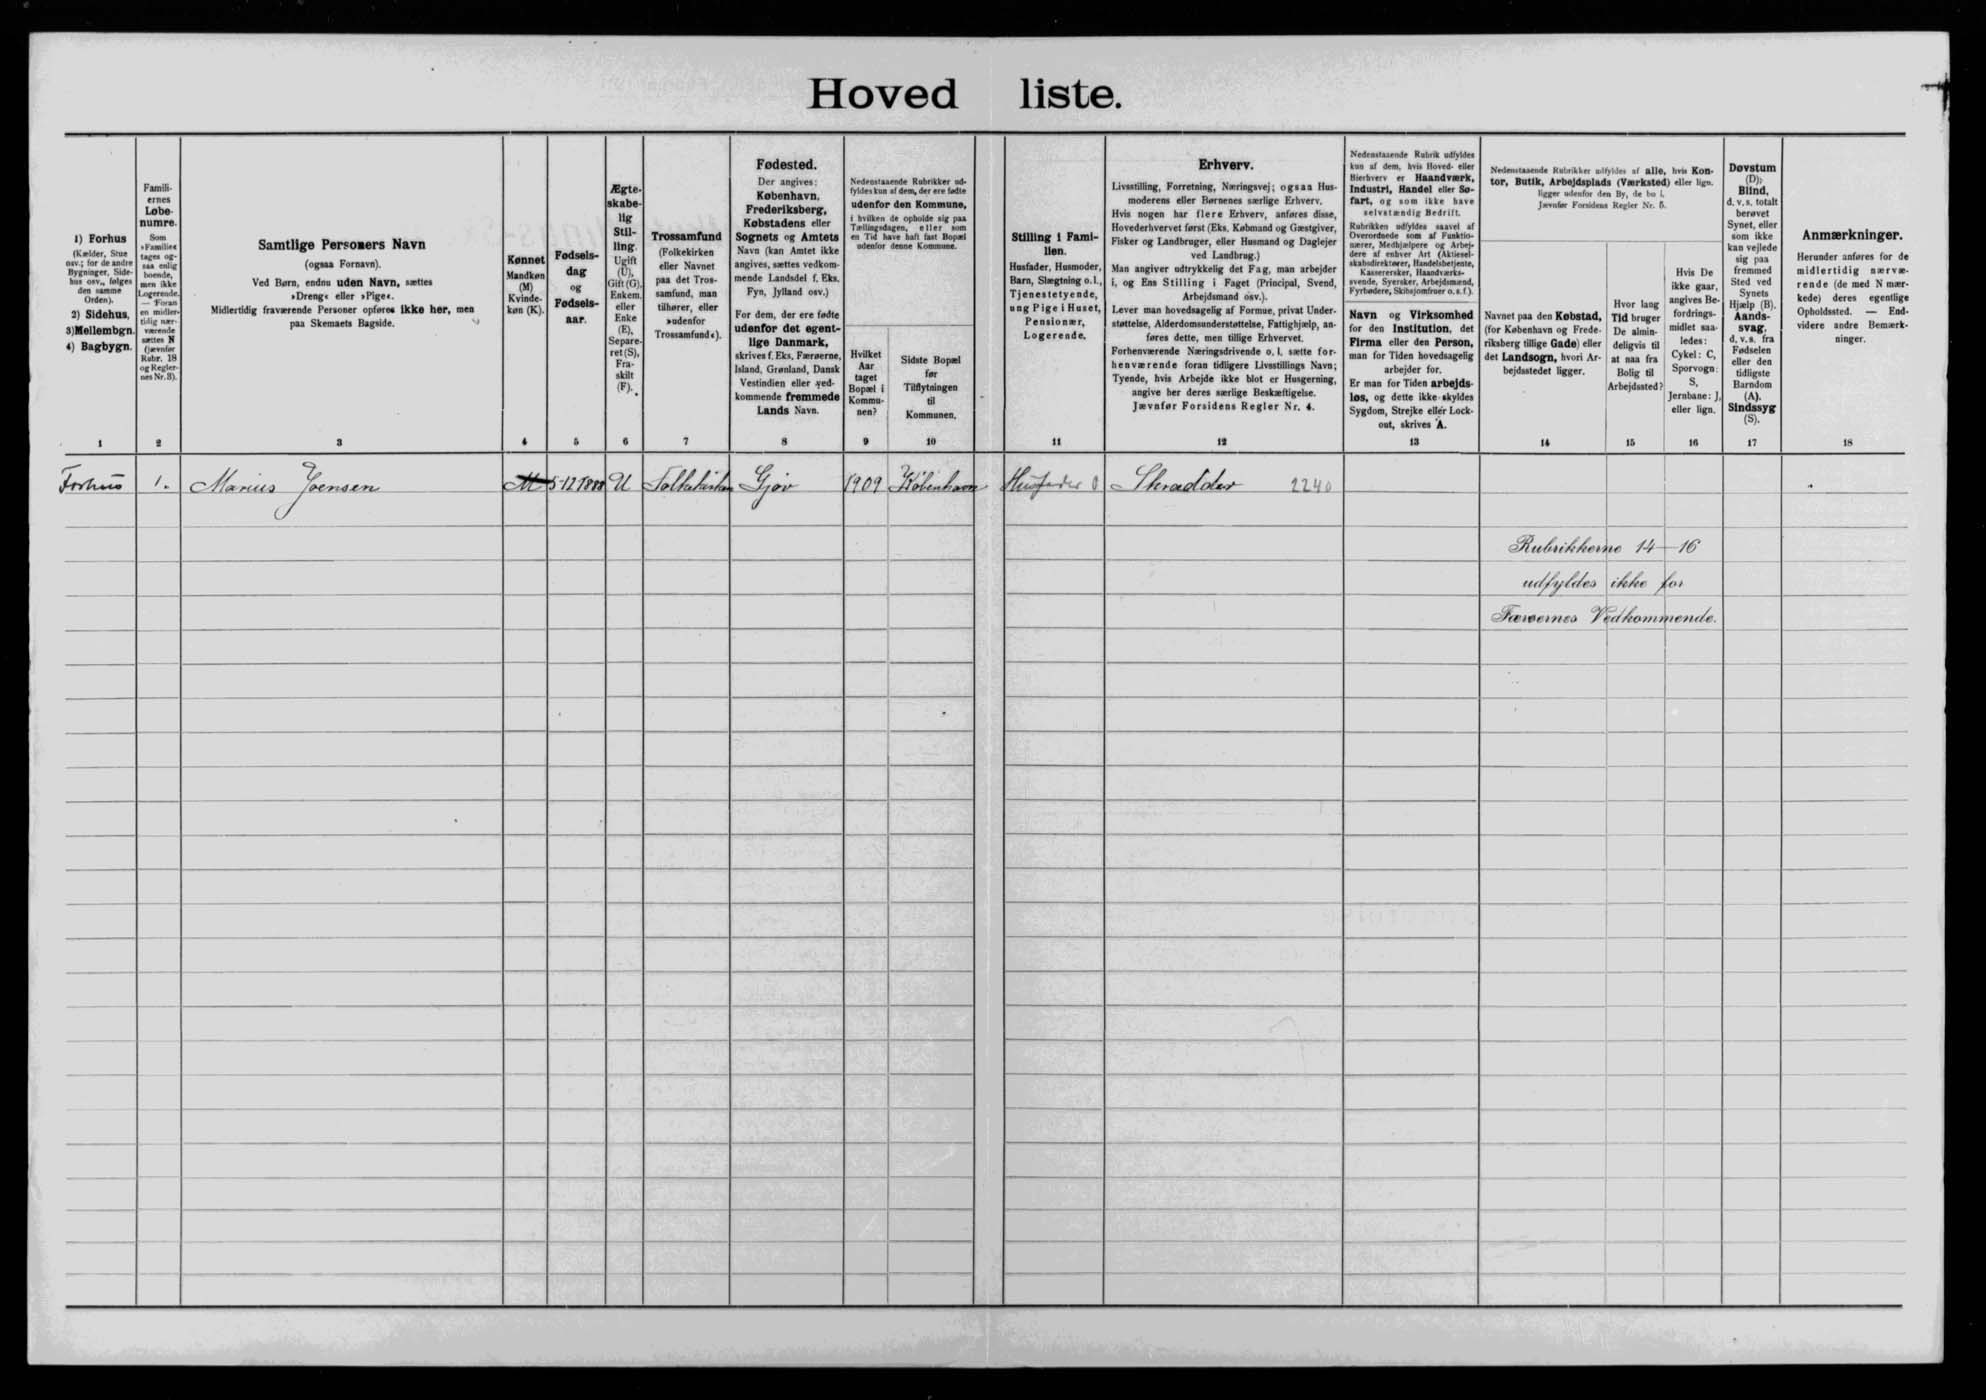 Hoved liste.
1) Forhus
(Kælder, Stue
osv.; for de andre
Bygninger, Side-
hus osv., følges
den samme
Orden).
2) Sidehus,
3) Mellembgn.
4) Bagbygn.
1
Famili-
ernes
Løbe-
numre.
Som
»Familie«
tages og-
saa enlig
boende,
men ikke
Logerende.
— Foran
en midler-
tidig nær-
værende
sættes N
(jævnfør
Rubr. 18
og Regler-
nes Nr. 3).
2
Samtlige Personers Navn
(ogsaa Fornavn).
Ved Børn, endnu uden Navn, sættes
»Dreng« eller »Pige«.
Midlertidig fraværende Personer opføres ikke her, men
paa Skemaets Bagside.
3
Kønnet
Mandkøn
(M)
Kvinde-
køn (K).
4
Fødsels-
dag
og
Fødsels-
aar.
5
Ægte-
skabe-
lig
Stil-
ling.
Ugift
(U),
Gift (G),
Enkem.
eller
Enke
(E),
Separe-
ret (S),
Fra-
skilt
(F).
6
Trossamfund
(Folkekirken
eller Navnet
paa det Tros-
samfund, man
tilhører, eller
»udenfor
Trossamfund«).
7
Fødested.
Der angives:
København,
Frederiksberg,
Købstadens eller
Sognets og Amtets
Navn (kan Amtet ikke
angives, sættes vedkom-
mende Landsdel f. Eks.
Fyn, Jylland osv.)
For dem, der ere fødte
udenfor det egent-
lige Danmark,
skrives f. Eks. Færøerne,
Island, Grønland, Dansk
Vestindien eller ved-
kommende fremmede
Lands Navn.
8
Nedenstaaende Rubrikker ud-
fyldes kun af dem, der ere fødte
udenfor den Kommune,
i hvilken de opholde sig paa
Tællingsdagen, eller som
en Tid have haft fast Bopæl
udenfor denne Kommune.
Hvilket
Aar
taget
Bopæl i
Kommu-
nen?
9
Sidste Bopæl
før
Tilflytningen
til
Kommunen.
10
Stilling i Fami-
lien.
Husfader, Husmoder,
Barn, Slægtning o.l.,
Tjenestetyende,
ung Pige i Huset,
Pensionær,
Logerende.
11
Erhverv.
Livsstilling, Forretning, Næringsvej; ogsaa Hus-
moderens eller Børnenes særlige Erhverv.
Hvis nogen har flere Erhverv, anføres disse,
Hovederhvervet først (Eks. Købmand og Gæstgiver,
Fisker og Landbruger, eller Husmand og Daglejer
ved Landbrug.)
Man angiver udtrykkelig det Fag, man arbejder
i, og Ens Stilling i Faget (Principal, Svend,
Arbejdsmand osv.).
Lever man hovedsagelig af Formue, privat Under-
støttelse, Alderdomsunderstøttelse, Fattighjælp, an-
føres dette, men tillige Erhvervet.
Forhenværende Næringsdrivende o. l. sætte for-
henværende foran tidligere Livsstillings Navn;
Tyende, hvis Arbejde ikke blot er Husgerning,
angive her deres særlige Beskæftigelse.
Jævnfør Forsidens Regler Nr. 4.
12
Nedenstaaende Rubrik udfyldes
kun af dem, hvis Hoved- eller
Bierhverv er Haandværk,
Industri, Handel eller Sø-
fart, og som ikke have
selvstændig Bedrift.
Rubrikken udfyldes saavel af
Overordnede som af Funktio-
nærer, Medhjælpere og Arbej-
dere af enhver Art (Aktiesel-
skabsdirektører, Handelsbetjente,
Kassererersker, Haandværks-
svende, Syersker, Arbejdsmænd,
Fyrbødere, Skibsjomfruer o. s. f.).
Navn og Virksomhed
for den Institution, det
Firma eller den Person,
man for Tiden hovedsagelig
arbejder for.
Er man for Tiden arbejds-
løs, og dette ikke skyldes
Sygdom, Strejke eller Lock-
out, skrives A.
13
Nedenstaaende Rubrikker udfyldes af alle, hvis Kon-
tor, Butik, Arbejdsplads (Værksted) eller lign.
ligger udenfor den By, de bo i.
Jævnfør Forsidens Regler Nr. 5.
Navnet paa den Købstad,
(for København og Frede-
riksberg tillige Gade) eller
det Landsogn, hvori Ar-
bejdsstedet ligger.
14
Hvor lang
Tid bruger
De almin-
deligvis til
at naa fra
Bolig til
Arbejdssted?
15
Hvis De
ikke gaar,
angives Be-
fordrings-
midlet saa-
ledes:
Cykel: C,
Sporvogn:
S,
Jernbane: J,
eller lign.
16
Døvstum
(D);
Blind,
d. v. s. totalt
berøvet
Synet, eller
som ikke
kan vejlede
sig paa
fremmed
Sted ved
Synets
Hjælp (B).
Aands-
svag,
d. v. s. fra
Fødselen
eller den
tidligste
Barndom
(A).
Sindssyg
(S).
17
Anmærkninger.
Herunder anføres for de
midlertidig nærvæ-
rende (de med N mær-
kede) deres egentlige
Opholdssted. — End-
videre andre Bemærk-
ninger.
18
Forhus 1. Marius Joensen M 5-12 1888 U Folkekirken Gjov 1909 København Husfader 0 Skrædder 2240
Rubrikkerne 14–16
udfyldes ikke for
Færøernes Vedkommende.